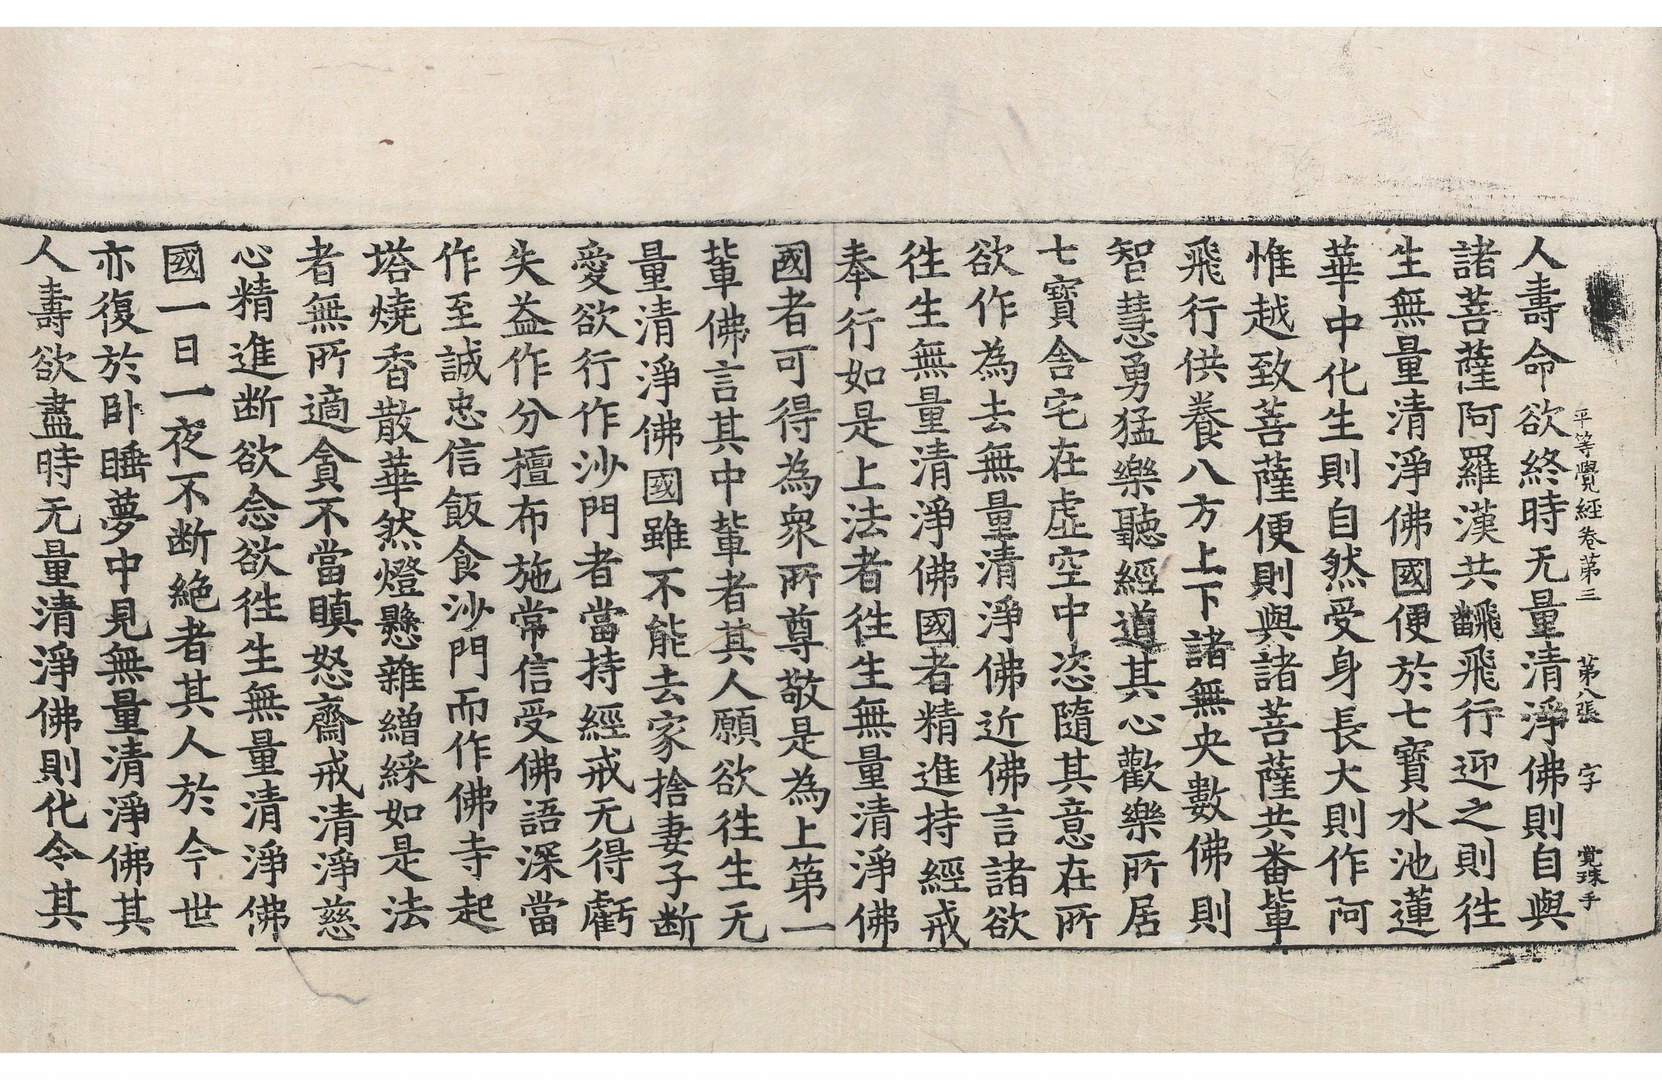 平等覺經卷第三　第八張　字　覚珠手
人壽命欲終時无量清淨佛則自與
諸菩薩阿羅漢共飜飛行迎之則徃
生無量清淨佛國便於七寶水池蓮
華中化生則自然受身長大則作阿
惟越致菩薩便則與諸菩薩共畨軰
飛行供養八方上下諸無央數佛則
智慧勇猛樂聽經道其心歡樂所居
七寶舎宅在虛空中恣隨其意在所
欲作為去無量清淨佛近佛言諸欲
徃生無量清淨佛國者精進持經戒
奉行如是上法者徃生無量清淨佛
國者可得為衆所尊敬是為上第一
軰佛言其中軰者其人願欲徃生无
量清淨佛國雖不能去家捨妻子断
愛欲行作沙門者當持經戒无得虧
失益作分檀布施常信受佛語深當
作至誠忠信飯食沙門而作佛寺起
塔燒香散華然燈懸雜繒綵如是法
者無所適貪不當瞋怒齋戒清淨慈
心精進断欲念欲徃生無量清淨佛
國一日一夜不断絶者其人於今世
亦復於卧睡夢中見無量清淨佛其
人壽欲盡時无量清淨佛則化令其